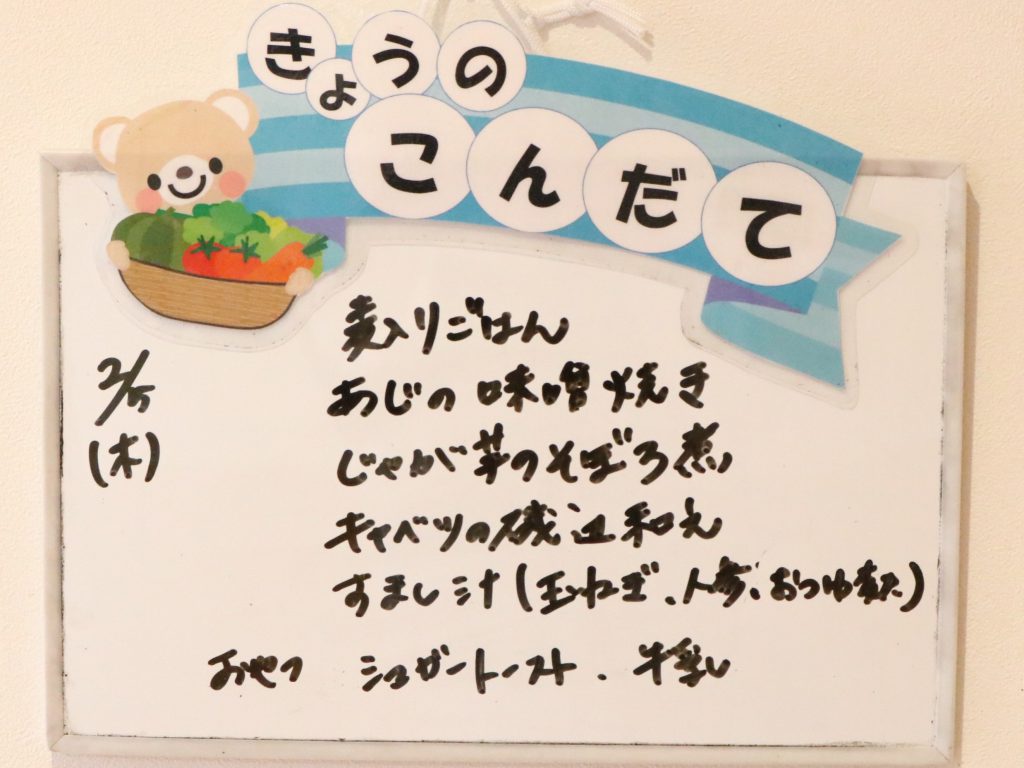 きょうの
こんだて
2/5
(木)
麦入りごはん
あじの味噌焼き
じゃが芋のそぼろ煮
キャベツの磯辺和え
すまし汁(玉ねぎ、人参、おつゆ麩)
おやつ シュガートースト、牛乳